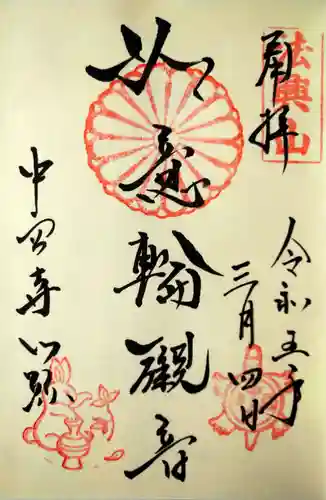 奉拝
法興山
令和五年
三月四日
如意輪觀音
中宮寺門跡